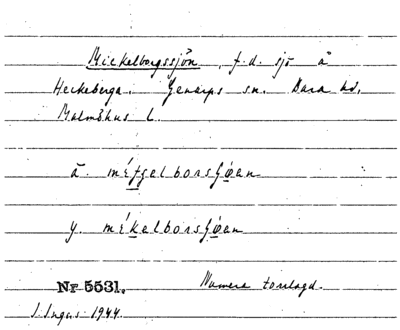 Mickelborgssjön, f.d. sjö å
Heckeberga. Genarps sn. Bara hd.
Malmöhus l.
ä. méʃʃelborsʃøan
y. mékelborsʃøan
Nr 5531. Numera torrlagd.
1944.